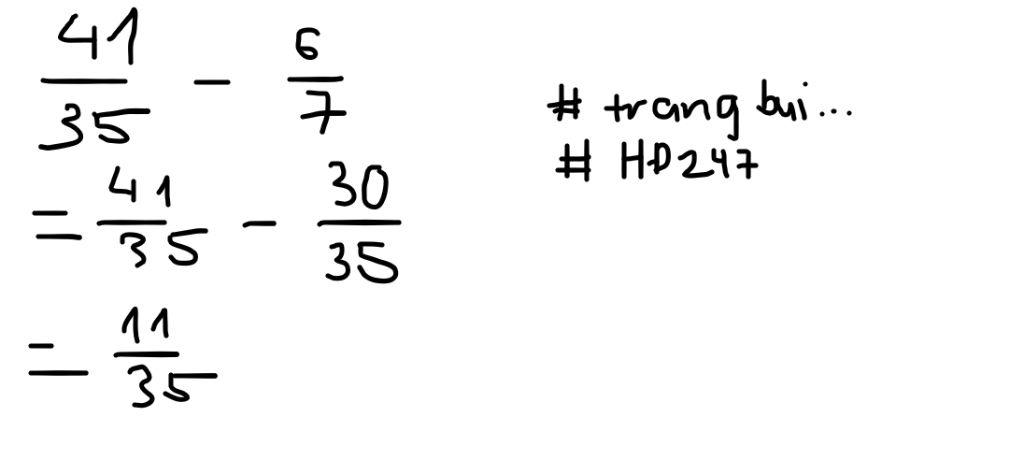 41/35 - 6/7
= 41/35 - 30/35
= 11/35
# trang bui...
# HD247